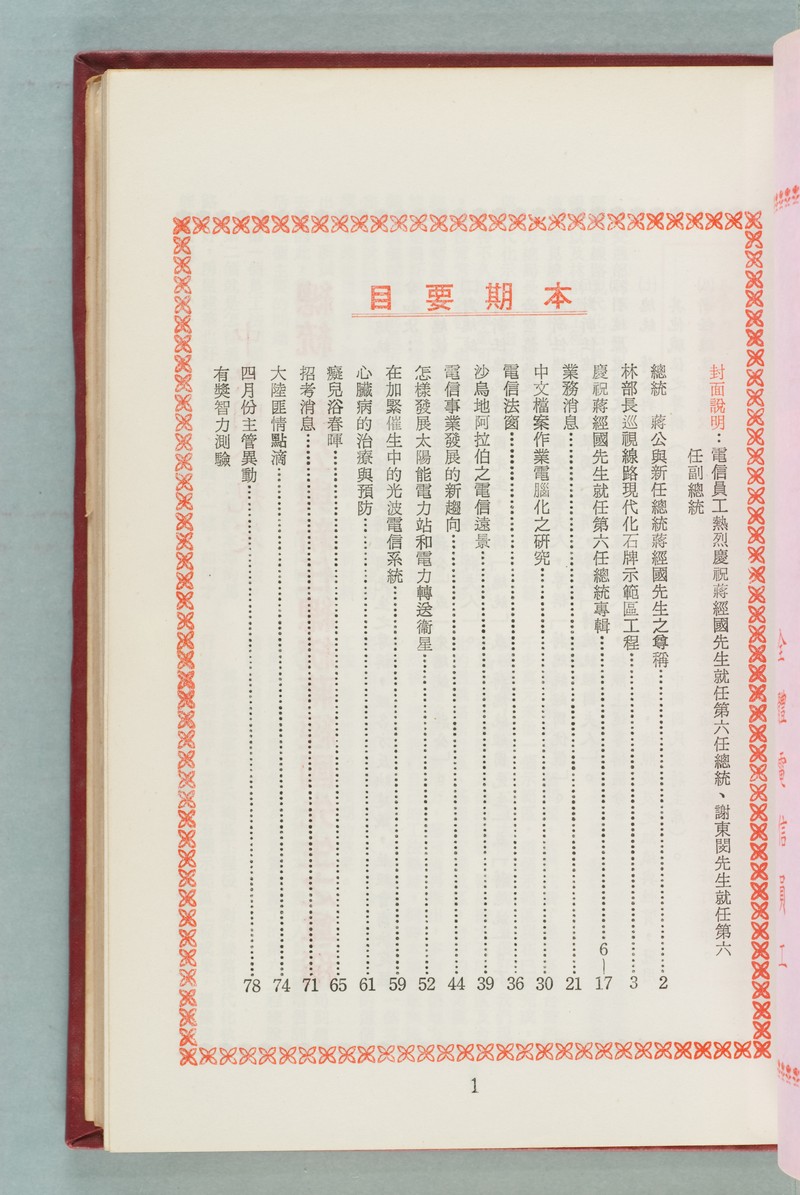 本期要目
封面說明：電信員工熱烈慶祝蔣經國先生就任第六任總統、謝東閔先生就任第六
任副總統
總統　蔣公與新任總統蔣經國先生之尊稱……2
林部長巡視線路現代化石牌示範區工程……3
慶祝蔣經國先生就任第六任總統專輯……6—17
業務消息……21
中文檔案作業電腦化之研究……30
電信法窗……36
沙烏地阿拉伯之電信遠景……39
電信事業發展的新趨向……44
怎樣發展太陽能電力站和電力轉送衞星……52
在加緊催生中的光波電信系統……59
心臟病的治療與預防……61
癡兒浴春暉……65
招考消息……71
大陸匪情點滴……74
四月份主管異動……78
有獎智力測驗
1